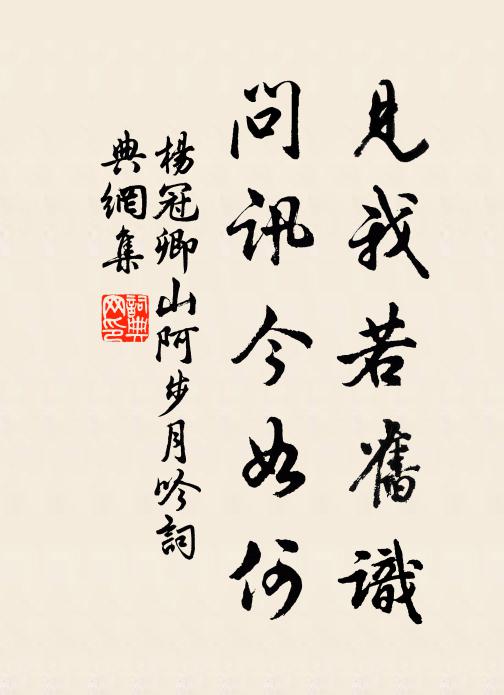 見我若舊識
問訊今如何
楊冠卿山阿步月吟詞
典網集
詞典網印